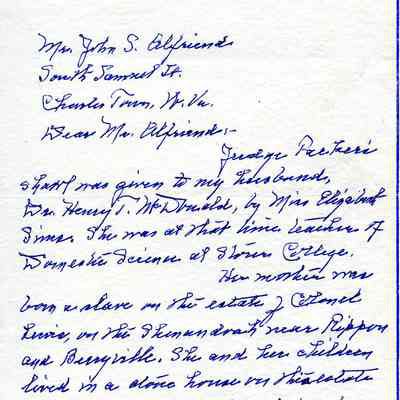 Mr. John S. Alfriend
South Samuel St.
Charles Town, W. Va.
Dear Mr. Alfriend:-
Judge Parker's
shawl was given to my husband,
Dr. Henry T. McDonald, by Miss Elizabeth
Sims. She was at that time teacher of
Domestic Science at Storer College.
Her mother was
born a slave on the estate of Colonel
Lewis, on the Shenandoah near Rippon
and Berryville. She and her children
lived in a stone house on this estate